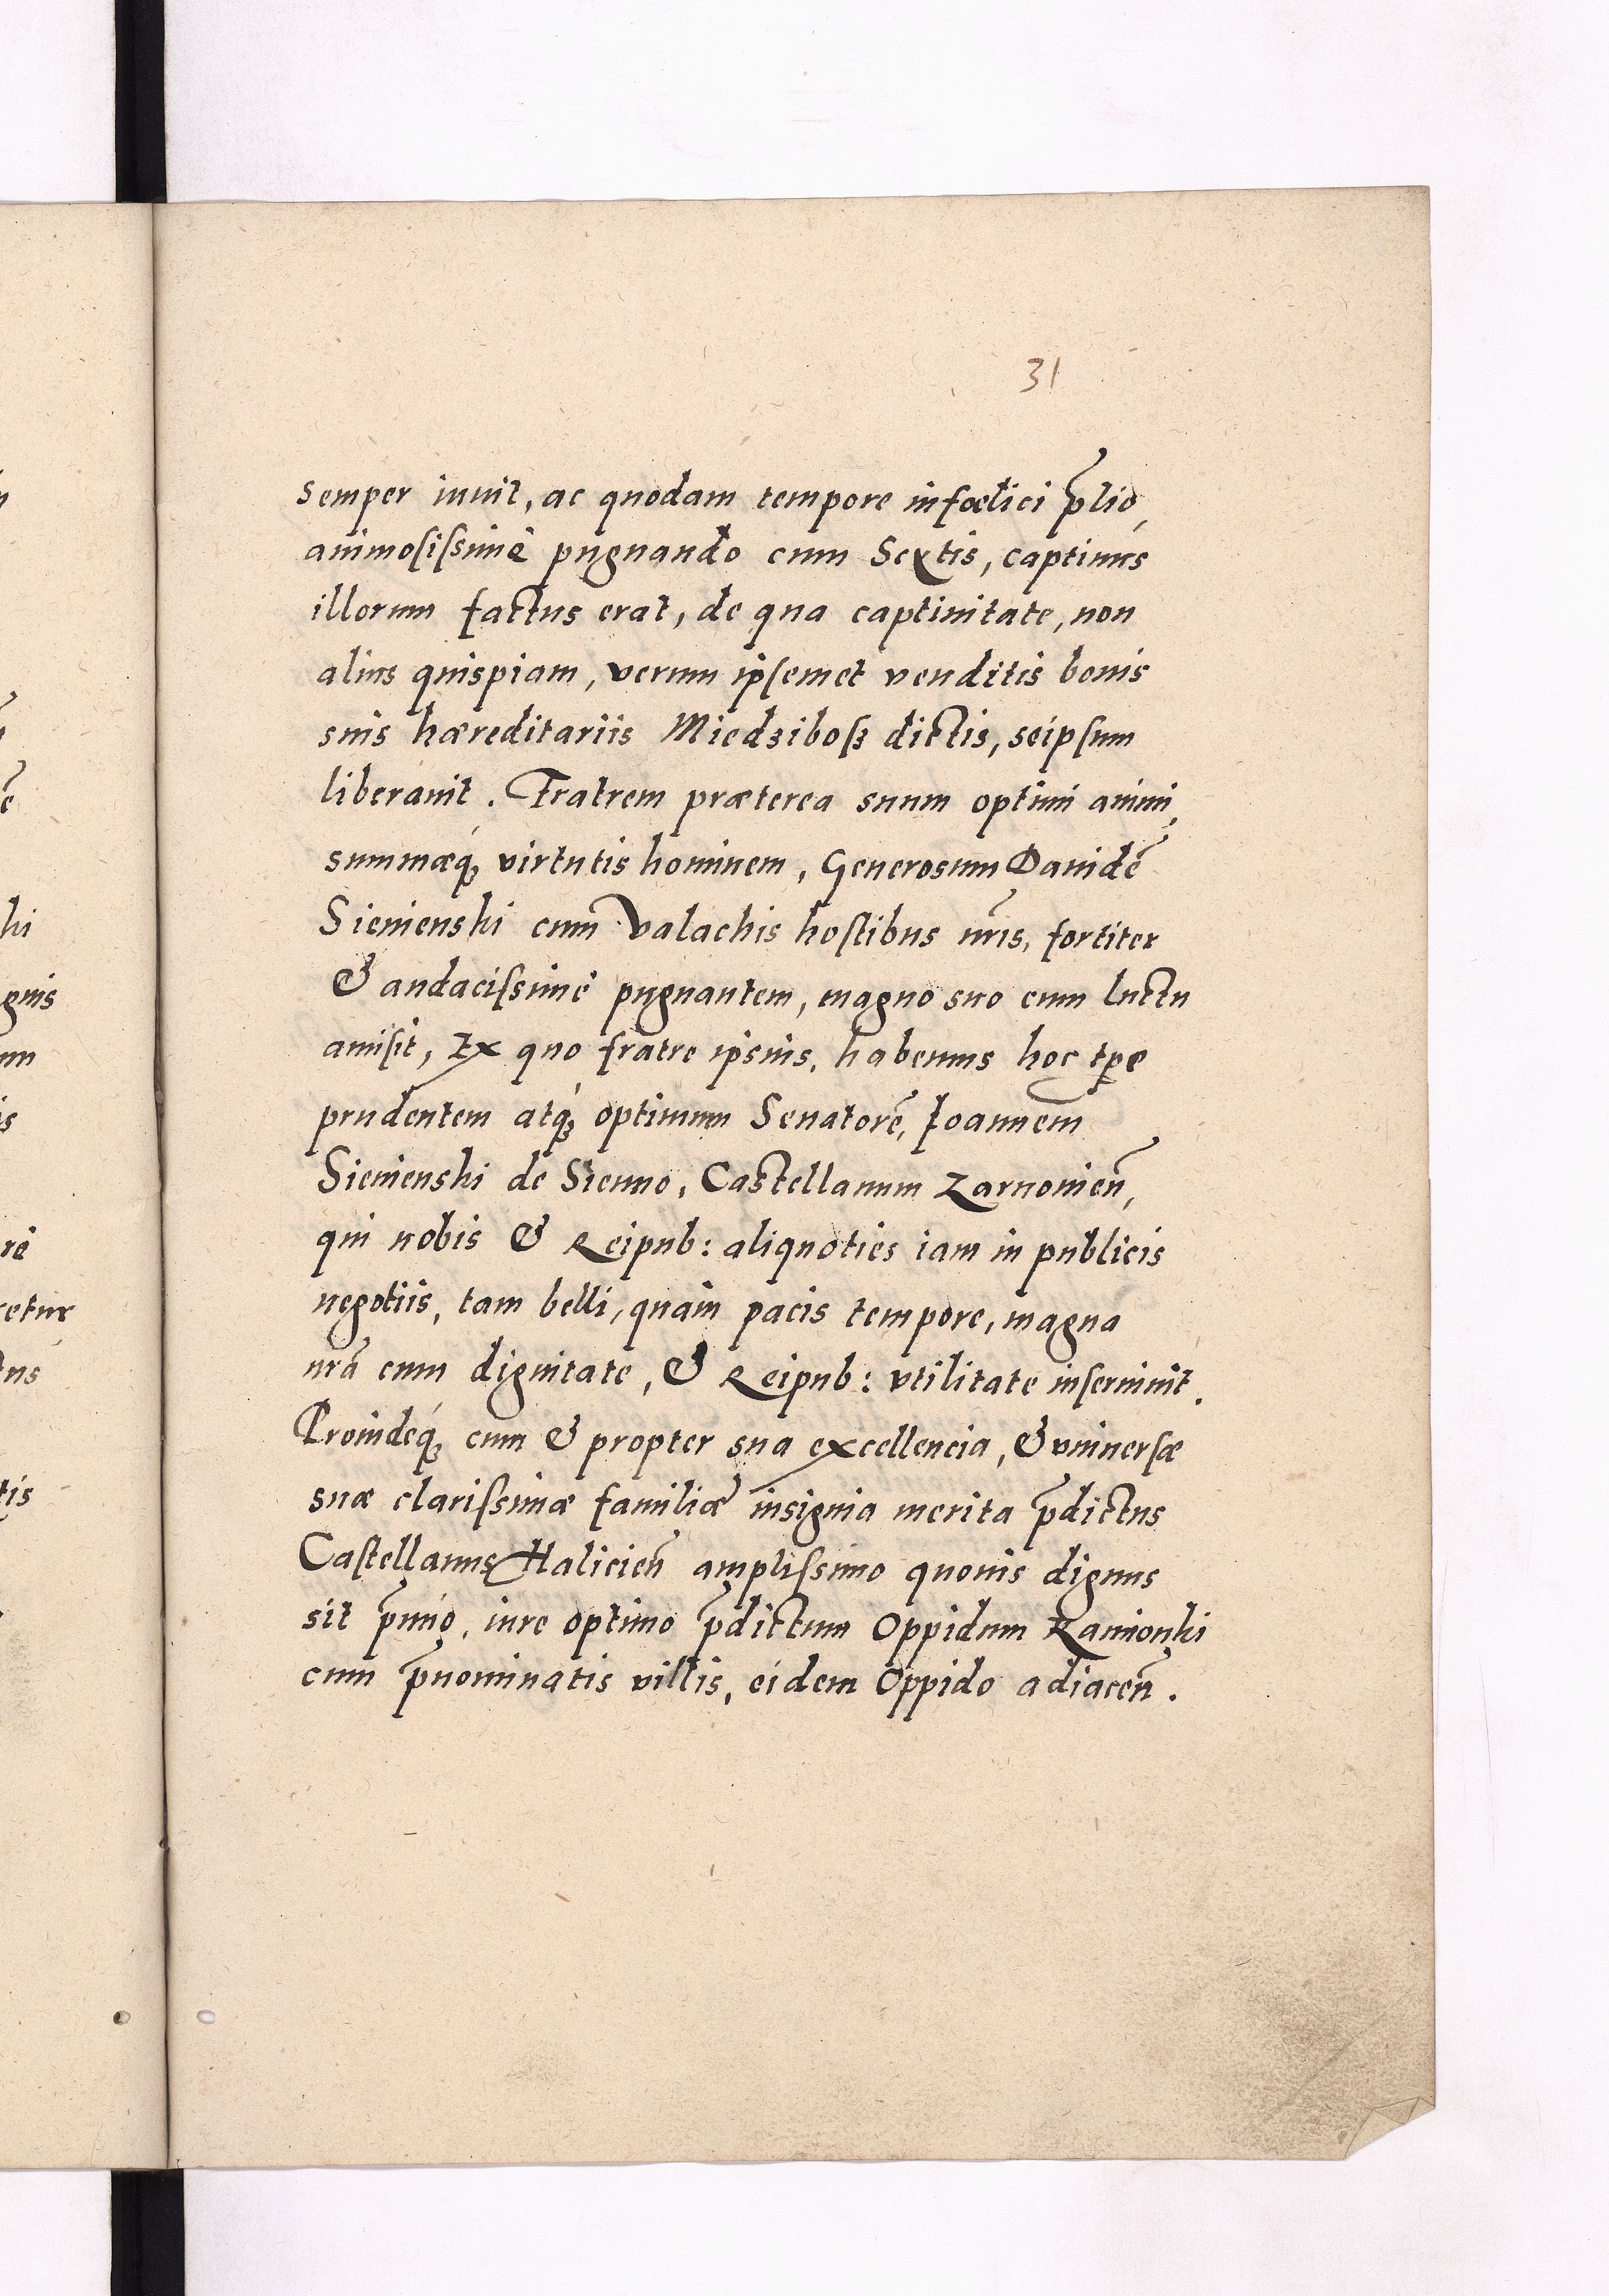 31
semper iuuit, ac quodam tempore infœlici p̃lio,
animosissimè pugnando cum Scytis, captiuus
illorum factus erat, de qua captiuitate, non
alius quispiam, verum ipsemet venditis bonis
suis hæreditariis Miedzibosz dictis, seipsum
liberauit. Fratrem præterea suum optimi animi,
summæq́ꝫ virtutis hominem, Generosum Dauidẽ
Sienienski cum Valachis hostibus nr̃is, fortiter
& audacissimè pugnantem, magno suo cum luctu
amisit, Ex quo fratre ipsius, habemus hoc tp̃e
prudentem atq́ꝫ optimum Senatorẽ, Ioannem
Sienienski de Sienno, Castellanum Zarnouieñ,
qui nobis & Reipub: aliquoties iam in publicis
negotiis, tam belli, quàm pacis tempore, magna
nr̃a cum dignitate, & Reipub: vtilitate inseruiuit.
Proindeq́ꝫ cum & propter sua excellencia, & vniuersæ
suæ clarissimæ familiæ insignia merita p̃dictus
Castellanus Halicieñ amplissimo quouis dignus
sit p̃mio, iure optimo p̃dictum Oppidum Ramionki
cum p̃nominatis villis, eidem Oppido adiaceñ.